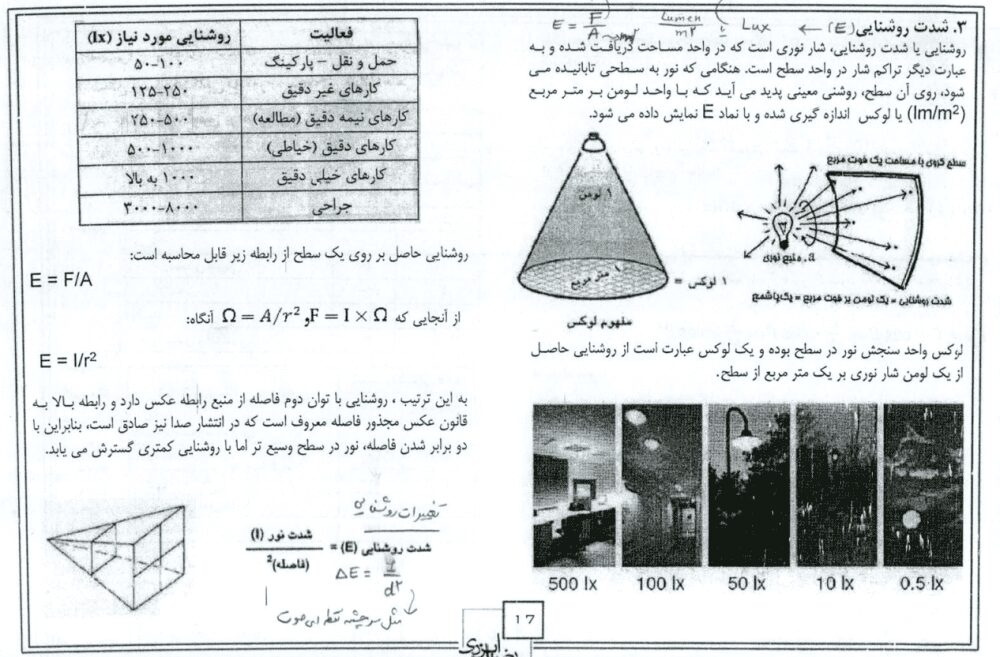 ۳. شدت روشنایی (E) ← Lux = Lumen / m² E = F / A → m²
روشنایی یا شدت روشنایی، شار نوری است که در واحد مساحت دریافت شده و به
عبارت دیگر تراکم شار در واحد سطح است. هنگامی که نور به سطحی تابانیده می
شود، روی آن سطح، روشنی معینی پدید می آید که با واحد لومن بر متر مربع
(lm/m²) یا لوکس اندازه گیری شده و با نماد E نمایش داده می شود.
سطح کروی با مساحت یک فوت مربع
a. منبع نوری
شدت روشنایی = یک لومن بر فوت مربع = یک پاشمع
۱ لومن
۱ متر مربع
۱ لوکس =
مفهوم لوکس
لوکس واحد سنجش نور در سطح بوده و یک لوکس عبارت است از روشنایی حاصل
از یک لومن شار نوری بر یک متر مربع از سطح.
500 lx 100 lx 50 lx 10 lx 0.5 lx
فعالیت روشنایی مورد نیاز (lx)
حمل و نقل – پارکینگ ۵۰-۱۰۰
کارهای غیر دقیق ۱۲۵-۲۵۰
کارهای نیمه دقیق (مطالعه) ۲۵۰-۵۰۰
کارهای دقیق (خیاطی) ۵۰۰-۱۰۰۰
کارهای خیلی دقیق ۱۰۰۰ به بالا
جراحی ۳۰۰۰-۸۰۰۰
روشنایی حاصل بر روی یک سطح از رابطه زیر قابل محاسبه است:
E = F/A
از آنجایی که F = I × Ω و Ω = A/r² آنگاه:
E = I/r²
به این ترتیب ، روشنایی با توان دوم فاصله از منبع رابطه عکس دارد و رابطه بالا به
قانون عکس مجذور فاصله معروف است که در انتشار صدا نیز صادق است، بنابراین با
دو برابر شدن فاصله، نور در سطح وسیع تر اما با روشنایی کمتری گسترش می یابد.
تغییرات روشنایی
شدت روشنایی (E) = شدت نور (I) / (فاصله)²
ΔE = I / d²
مثل سرچشمه نقطه ای صوت
17